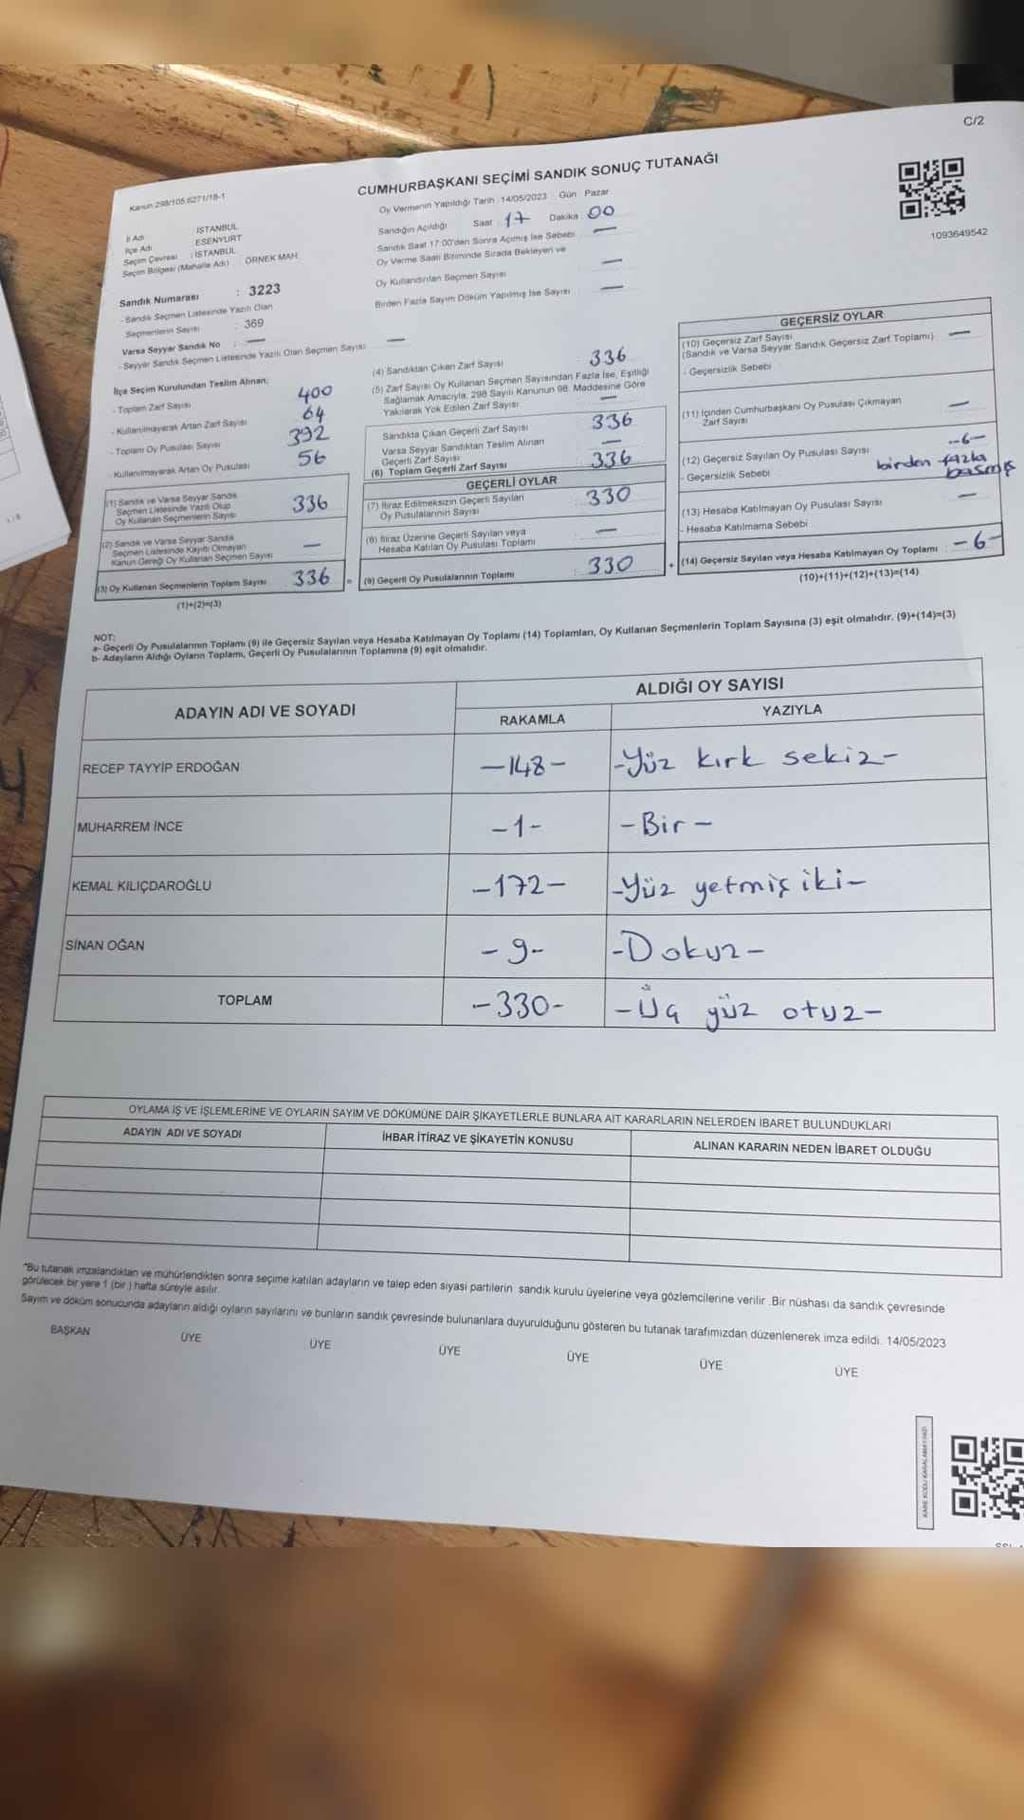 C/2
Kanun 298/105.6271/18-1
CUMHURBAŞKANI SEÇİMİ SANDIK SONUÇ TUTANAĞI
Oy Vermenin Yapıldığı Tarih : 14/05/2023 Gün Pazar
1093649542
İl Adı : İSTANBUL
İlçe Adı : ESENYURT
Seçim Çevresi : İSTANBUL
Seçim Bölgesi (Mahalle Adı) : ÖRNEK MAH.
Sandık Numarası : 3223
- Sandık Seçmen Listesinde Yazılı Olan
Seçmenlerin Sayısı : 369
Varsa Seyyar Sandık No —
- Seyyar Sandık Seçmen Listesinde Yazılı Olan Seçmen Sayısı —
Sandığın Açıldığı Saat 17 Dakika 00
Sandık Saat 17:00'den Sonra Açılmış İse Sebebi —
Oy Verme Saati Bitiminde Sırada Bekleyen ve
Oy Kullandırılan Seçmen Sayısı —
Birden Fazla Sayım Döküm Yapılmış İse Sayısı —
İlçe Seçim Kurulundan Teslim Alınan;
- Toplam Zarf Sayısı 400
- Kullanılmayarak Artan Zarf Sayısı 64
- Toplam Oy Pusulası Sayısı 392
- Kullanılmayarak Artan Oy Pusulası 56
(1) Sandık ve Varsa Seyyar Sandık
Seçmen Listesinde Yazılı Olup
Oy Kullanan Seçmenlerin Sayısı 336
(2) Sandık ve Varsa Seyyar Sandık
Seçmen Listesinde Kayıtlı Olmayan
Kanun Gereği Oy Kullanan Seçmen Sayısı —
(3) Oy Kullanan Seçmenlerin Toplam Sayısı 336 =
(1)+(2)=(3)
(4) Sandıktan Çıkan Zarf Sayısı 336
(5) Zarf Sayısı Oy Kullanan Seçmen Sayısından Fazla İse, Eşitliği
Sağlamak Amacıyla, 298 Sayılı Kanunun 98. Maddesine Göre
Yakılarak Yok Edilen Zarf Sayısı —
Sandıkta Çıkan Geçerli Zarf Sayısı 336
Varsa Seyyar Sandıktan Teslim Alınan
Geçerli Zarf Sayısı —
(6) Toplam Geçerli Zarf Sayısı 336
GEÇERLİ OYLAR
(7) İtiraz Edilmeksizin Geçerli Sayılan
Oy Pusulalarının Sayısı 330
(8) İtiraz Üzerine Geçerli Sayılan veya
Hesaba Katılan Oy Pusulası Toplamı —
(9) Geçerli Oy Pusulalarının Toplamı 330 +
GEÇERSİZ OYLAR
(10) Geçersiz Zarf Sayısı
(Sandık ve Varsa Seyyar Sandık Geçersiz Zarf Toplamı) —
- Geçersizlik Sebebi
(11) İçinden Cumhurbaşkanı Oy Pusulası Çıkmayan
Zarf Sayısı —
(12) Geçersiz Sayılan Oy Pusulası Sayısı -6-
- Geçersizlik Sebebi birden fazla
basmış
(13) Hesaba Katılmayan Oy Pusulası Sayısı —
- Hesaba Katılmama Sebebi
(14) Geçersiz Sayılan veya Hesaba Katılmayan Oy Toplamı -6-
(10)+(11)+(12)+(13)=(14)
NOT:
a- Geçerli Oy Pusulalarının Toplamı (9) ile Geçersiz Sayılan veya Hesaba Katılmayan Oy Toplamı (14) Toplamları, Oy Kullanan Seçmenlerin Toplam Sayısına (3) eşit olmalıdır. (9)+(14)=(3)
b- Adayların Aldığı Oyların Toplamı, Geçerli Oy Pusulalarının Toplamına (9) eşit olmalıdır.
ADAYIN ADI VE SOYADI
ALDIĞI OY SAYISI
RAKAMLA YAZIYLA
RECEP TAYYİP ERDOĞAN -148- -Yüz kırk sekiz-
MUHARREM İNCE -1- -Bir-
KEMAL KILIÇDAROĞLU -172- -Yüz yetmiş iki-
SİNAN OĞAN -9- -Dokuz-
TOPLAM -330- -Üç yüz otuz-
OYLAMA İŞ VE İŞLEMLERİNE VE OYLARIN SAYIM VE DÖKÜMÜNE DAİR ŞİKAYETLERLE BUNLARA AİT KARARLARIN NELERDEN İBARET BULUNDUKLARI
ADAYIN ADI VE SOYADI İHBAR İTİRAZ VE ŞİKAYETİN KONUSU ALINAN KARARIN NEDEN İBARET OLDUĞU
*Bu tutanak imzalandıktan ve mühürlendikten sonra seçime katılan adayların ve talep eden siyasi partilerin sandık kurulu üyelerine veya gözlemcilerine verilir. Bir nüshası da sandık çevresinde
görülecek bir yere 1 (bir) hafta süreyle asılır.
Sayım ve döküm sonucunda adayların aldığı oyların sayılarını ve bunların sandık çevresinde bulunanlara duyurulduğunu gösteren bu tutanak tarafımızdan düzenlenerek imza edildi. 14/05/2023
BAŞKAN ÜYE ÜYE ÜYE ÜYE ÜYE ÜYE
KARE KODU KARALAMAYINIZ!